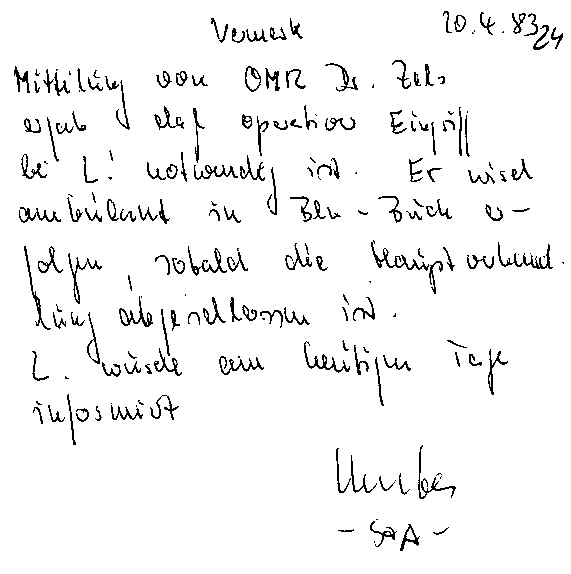 Vermerk 20.4.83 24
Mitteilung von OMR Dr. Zels
ergab daß operativer Eingriff
bei L. notwendig ist. Er wird
ambulant in Bln-Buch er-
folgen, sobald die Hauptverhand-
lung abgeschlossen ist.
L. wurde am heutigen Tage
informiert
- StA -